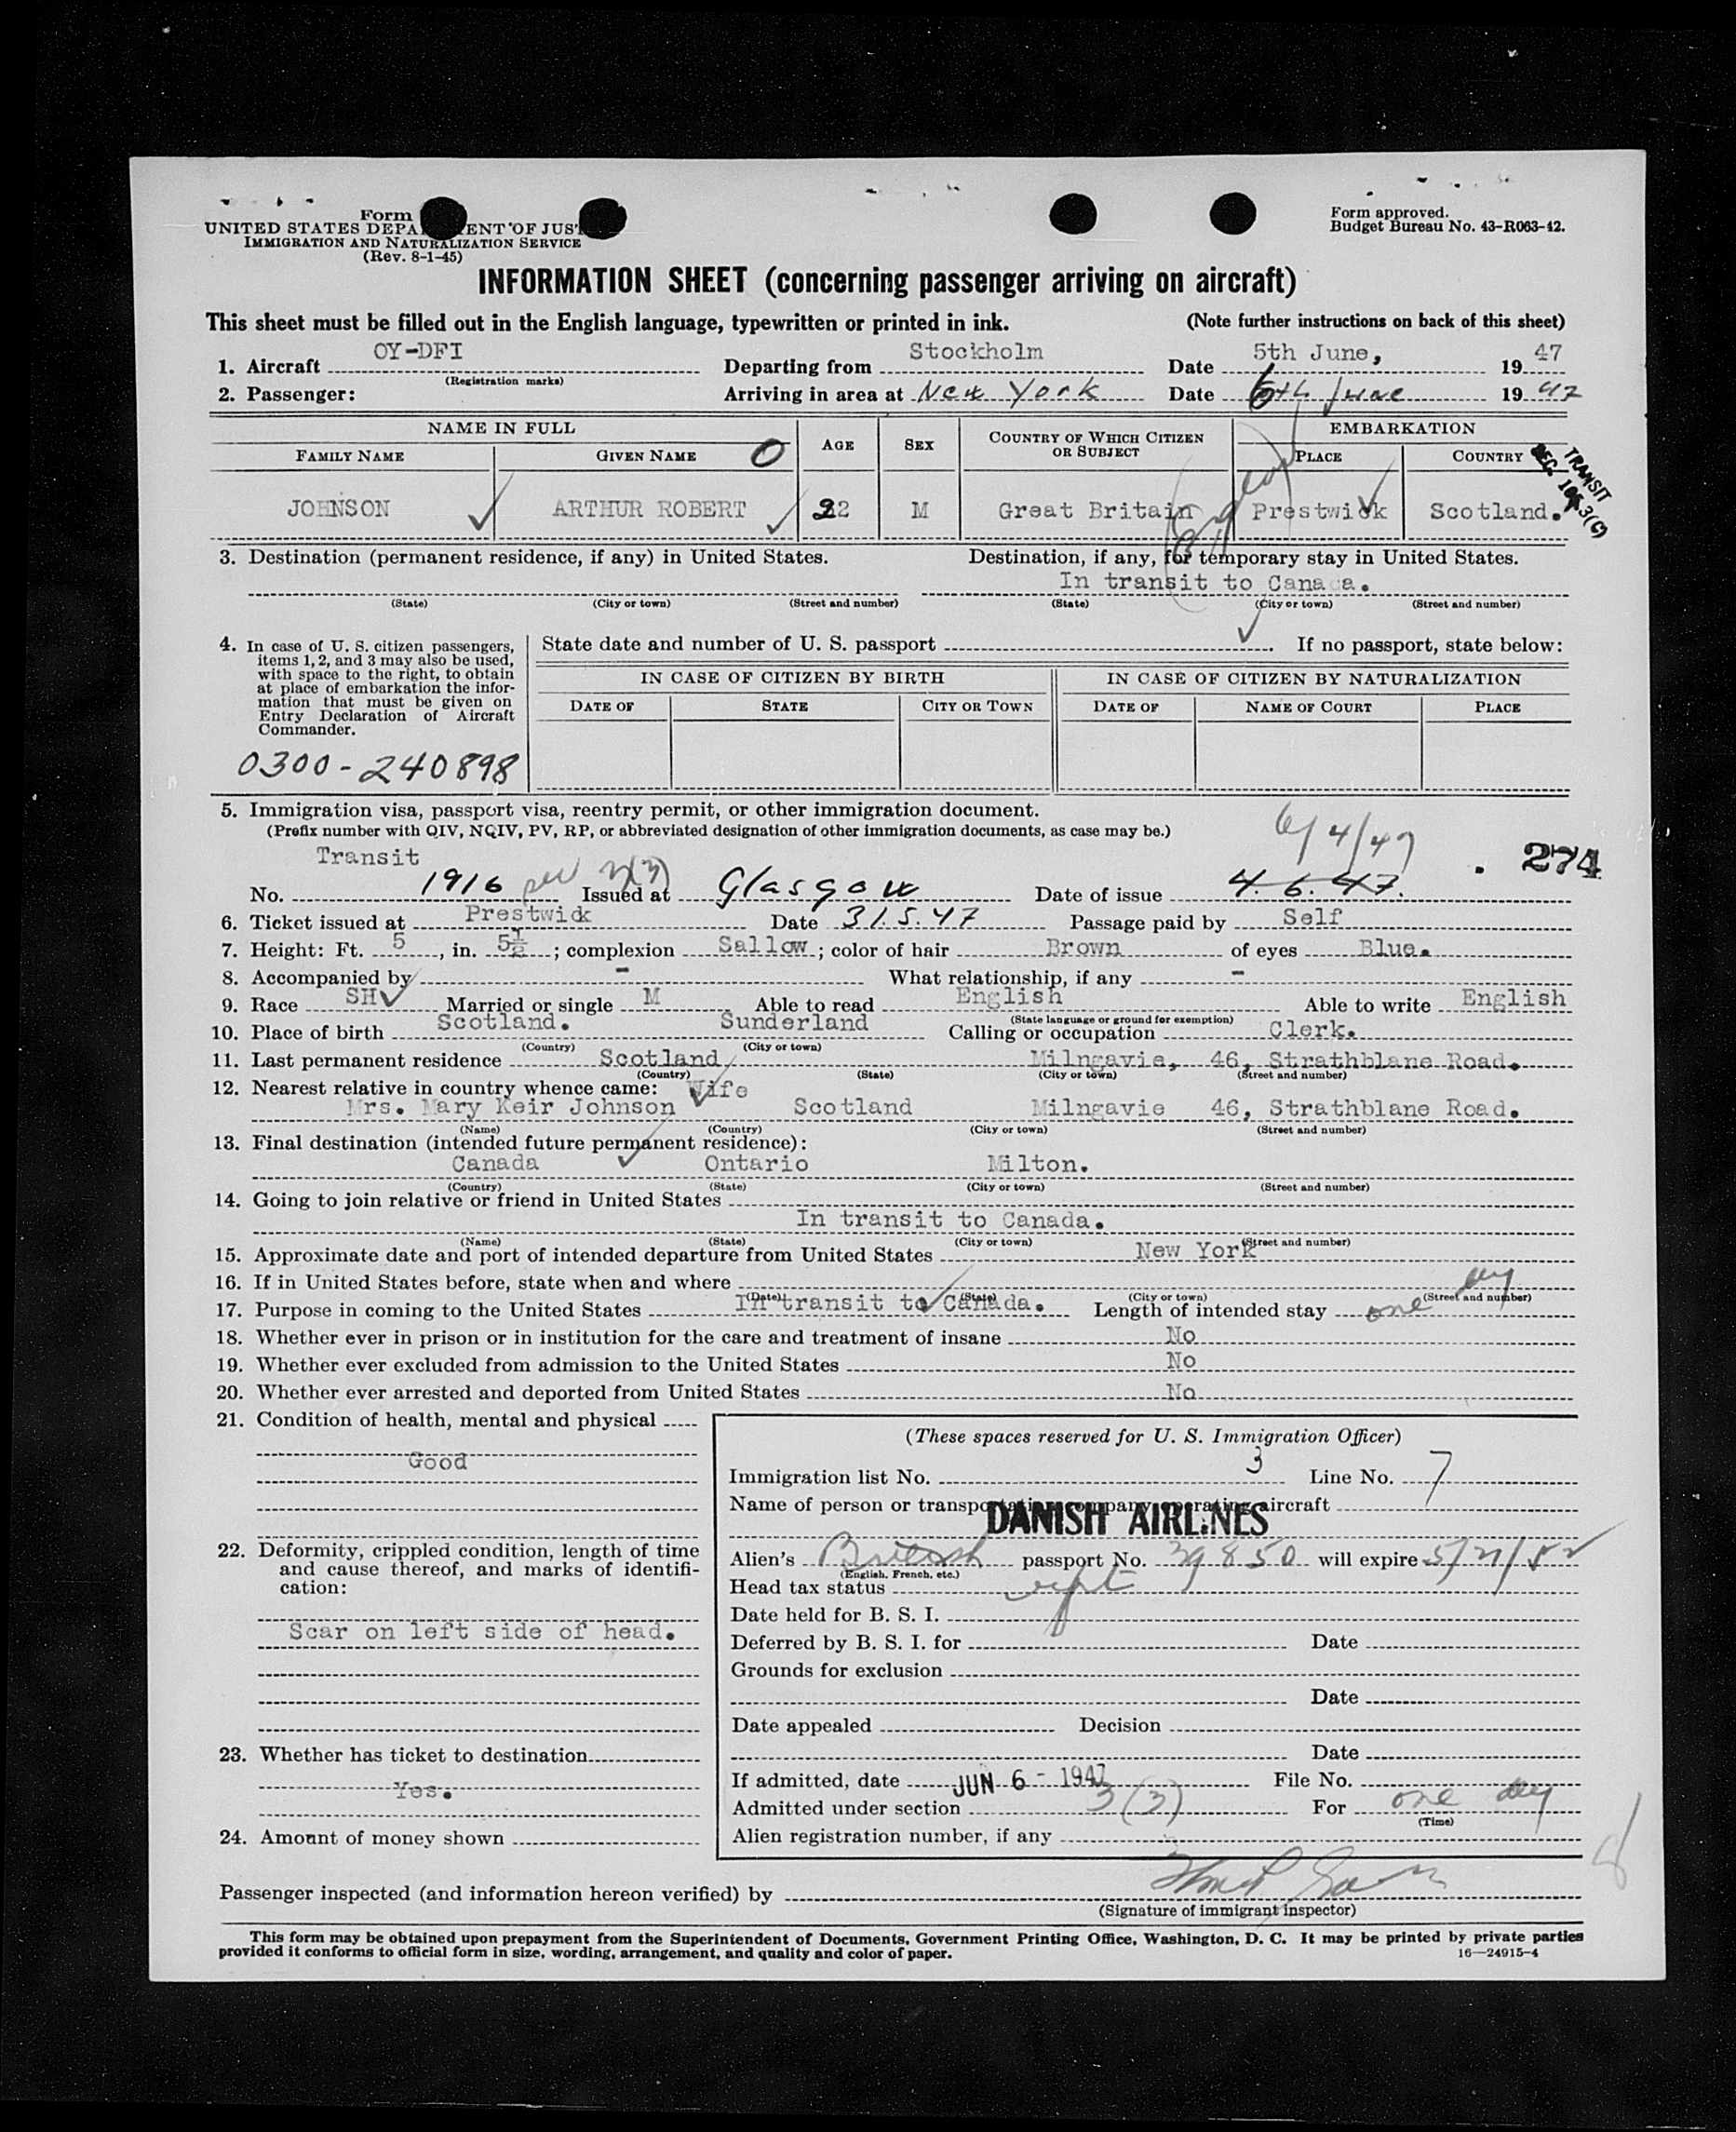 Form
UNITED STATES DEPA ENT OF JUS
IMMIGRATION AND NATURALIZATION SERVICE
(Rev. 8-1-45)
Form approved.
Budget Bureau No. 43-R063-42.
INFORMATION SHEET (concerning passenger arriving on aircraft)
This sheet must be filled out in the English language, typewritten or printed in ink. (Note further instructions on back of this sheet)
1. Aircraft OY-DFI Departing from Stockholm Date 5th June, 19 47
(Registration marks)
2. Passenger: Arriving in area at New York Date 6th June 19 47
NAME IN FULL AGE SEX COUNTRY OF WHICH CITIZEN OR SUBJECT EMBARKATION
FAMILY NAME GIVEN NAME O PLACE COUNTRY
TRANSIT
SEC. 3(C)
JOHNSON ARTHUR ROBERT 22 M Great Britain Prestwick Scotland.
England
3. Destination (permanent residence, if any) in United States. Destination, if any, for temporary stay in United States.
In transit to Canada.
(State) (City or town) (Street and number) (State) (City or town) (Street and number)
4. In case of U. S. citizen passengers, items 1, 2, and 3 may also be used, with space to the right, to obtain at place of embarkation the information that must be given on Entry Declaration of Aircraft Commander.
State date and number of U. S. passport If no passport, state below:
IN CASE OF CITIZEN BY BIRTH IN CASE OF CITIZEN BY NATURALIZATION
DATE OF STATE CITY OR TOWN DATE OF NAME OF COURT PLACE
0300-240898
5. Immigration visa, passport visa, reentry permit, or other immigration document.
(Prefix number with QIV, NQIV, PV, RP, or abbreviated designation of other immigration documents, as case may be.)
6/4/47
274
Transit
No. 1916 per 3(3) Issued at Glasgow Date of issue 4.6.47.
6. Ticket issued at Prestwick Date 31.5.47 Passage paid by Self
7. Height: Ft. 5, in. 5½; complexion Sallow; color of hair Brown of eyes Blue.
8. Accompanied by - What relationship, if any -
9. Race SH Married or single M Able to read English Able to write English
(State language or ground for exemption)
10. Place of birth Scotland. Sunderland Calling or occupation Clerk.
(Country) (City or town)
11. Last permanent residence Scotland Milngavie, 46, Strathblane Road.
(Country) (State) (City or town) (Street and number)
12. Nearest relative in country whence came: Wife
Mrs. Mary Keir Johnson Scotland Milngavie 46, Strathblane Road.
(Name) (Country) (City or town) (Street and number)
13. Final destination (intended future permanent residence):
Canada Ontario Milton.
(Country) (State) (City or town) (Street and number)
14. Going to join relative or friend in United States
In transit to Canada.
(Name) (State) (City or town) (Street and number)
15. Approximate date and port of intended departure from United States New York
16. If in United States before, state when and where
(Date) (State) (City or town) (Street and number)
17. Purpose in coming to the United States In transit to Canada. Length of intended stay one day
18. Whether ever in prison or in institution for the care and treatment of insane No
19. Whether ever excluded from admission to the United States No
20. Whether ever arrested and deported from United States No
21. Condition of health, mental and physical
Good
22. Deformity, crippled condition, length of time and cause thereof, and marks of identification:
Scar on left side of head.
23. Whether has ticket to destination
Yes.
24. Amount of money shown
(These spaces reserved for U. S. Immigration Officer)
Immigration list No. 3 Line No. 7
Name of person or transportation company operating aircraft
DANISH AIRLINES
Alien's British passport No. 39850 will expire 5/21/52
(English, French, etc.)
Head tax status
Date held for B. S. I.
Deferred by B. S. I. for Date
Grounds for exclusion
Date
Date appealed Decision
Date
If admitted, date JUN 6 - 1947 File No.
Admitted under section 3(3) For one day
(Time)
Alien registration number, if any
Passenger inspected (and information hereon verified) by
(Signature of immigrant inspector)
This form may be obtained upon prepayment from the Superintendent of Documents, Government Printing Office, Washington, D. C. It may be printed by private parties
provided it conforms to official form in size, wording, arrangement, and quality and color of paper. 16—24915-4